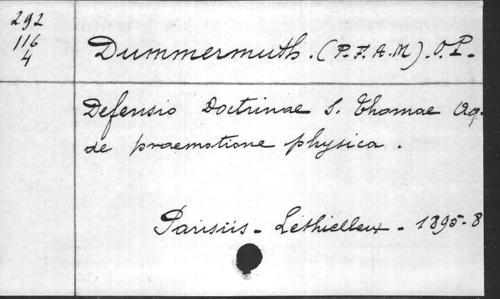 292
116
4
Dummermuth. (P. F. A. M.) . O. P.
Defensio Doctrinae S. Thomae Aq.
de praemotione physica .
Parisiis - Lethielleux - 1895 - 8